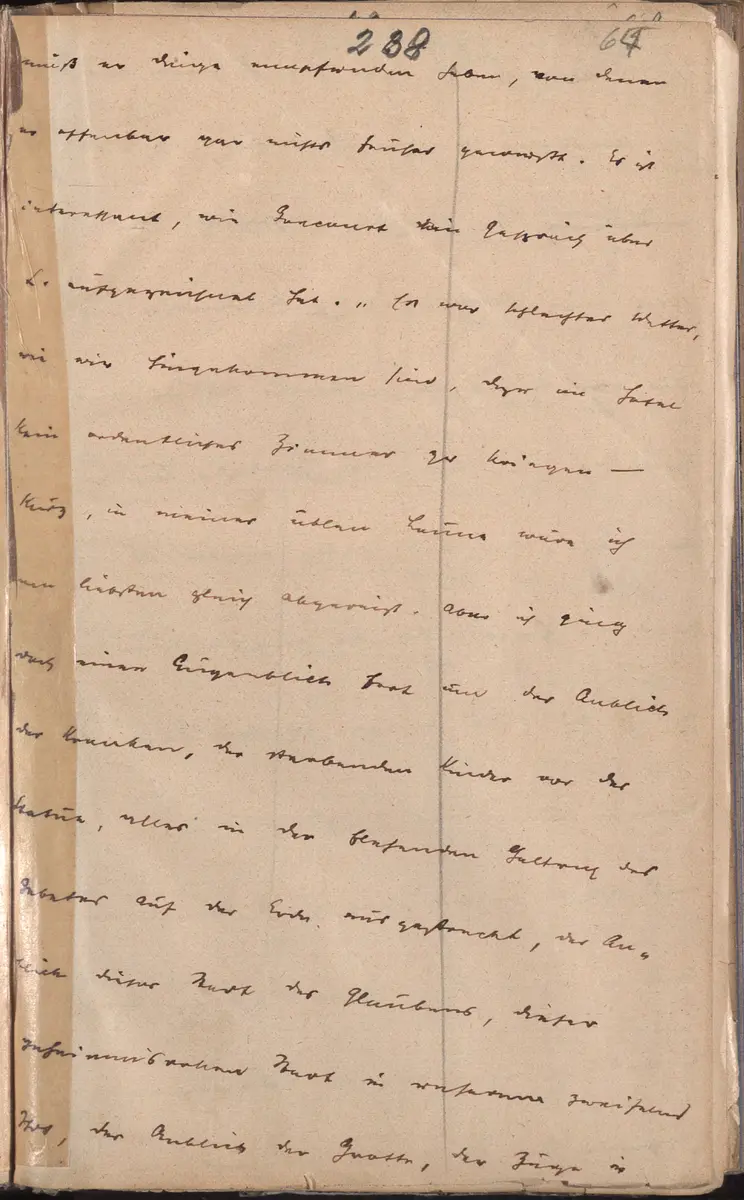 238 64
muß er Dinge empfunden haben, von denen
er offenbar gar nichts früher gewußt. Es ist
interessant, wie Goncourt ein Gespräch über
L. aufgezeichnet hat. „Es war schlechtes Wetter,
wie wir hingekommen sind, dazu im Hotel
kein ordentliches Zimmer zu kriegen —
kurz, in meiner üblen Laune wäre ich
am liebsten gleich abgereist. Aber ich ging
doch einen Augenblick fort und der Anblick
der Kranken, der sterbenden Kinder vor der
Statue, alles in der flehenden Haltung des
Gebetes auf der Erde ausgestreckt, der An-
blick dieser Stadt des Glaubens, dieser
geheimnisvollen Stadt in unserem zweifelnd
der Anblick der Grotte, der Züge in